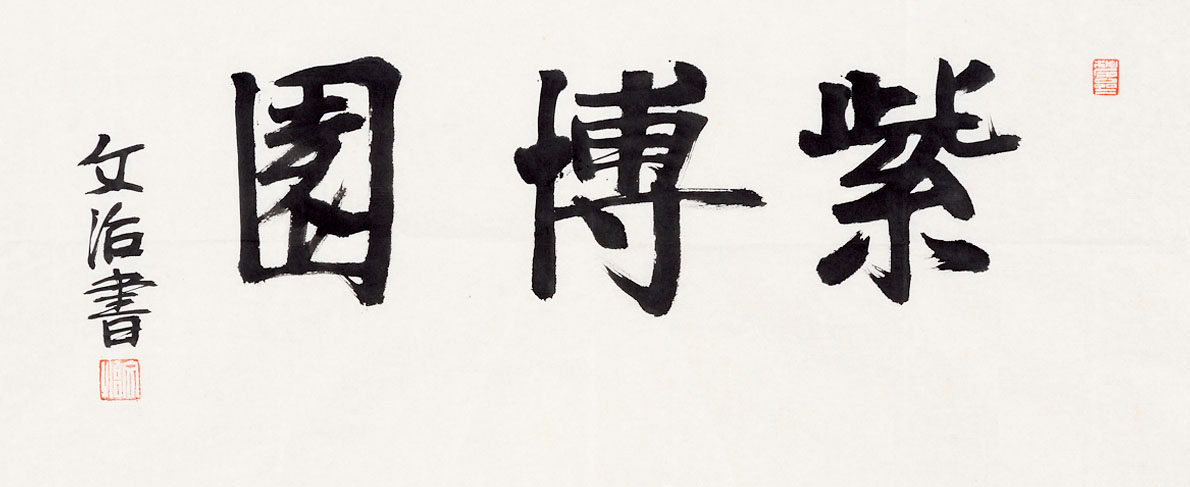 紫博園
文治書